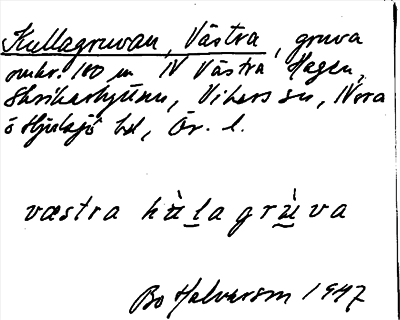 Kullagruvan, Västra, gruva
omkr. 100 m NV Västra Hagen,
Skrikarhyttan, Vikers sn, Nora
o Hjulsjö bd, Ör. l.
væstra kùlagrùva
Bo Halvarson 1947